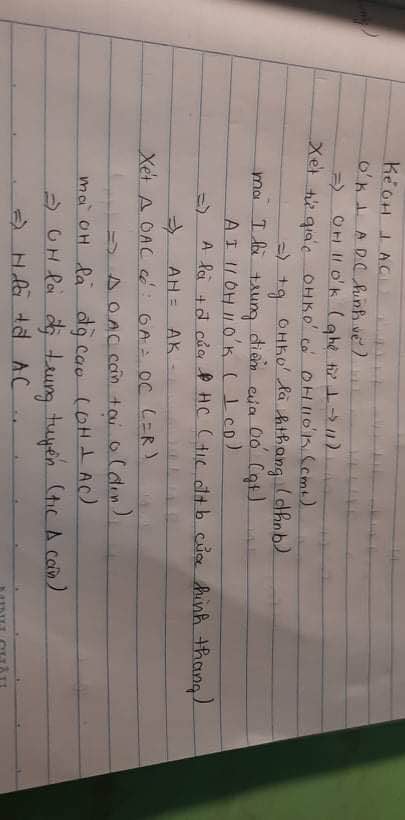 Kẻ OH ⊥ AC
O'K ⊥ AD (hình vẽ)
=> OH // O'K (qhệ từ ⊥ -> //)
Xét tứ giác OHKO' có OH // O'K (cmt)
=> tg OHKO' là hthang (dhnb)
mà I là trung điểm của OO' (gt)
AI // OH // O'K (⊥ CD)
=> A là tđ của HC (t/c đtb của hình thang)
=> AH = AK
Xét Δ OAC có: OA = OC (=R)
=> Δ OAC cân tại O (đ/n)
mà OH là đg cao (OH ⊥ AC)
=> OH là đg trung tuyến (t/c Δ cân)
=> H là tđ AC